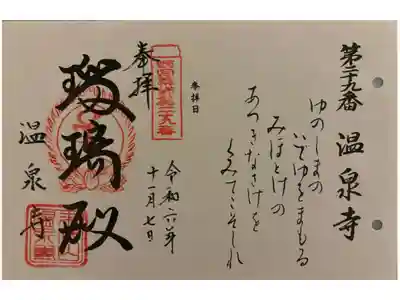 第二九番 温泉寺
ゆのしまの
いでゆをまもる
みほとけの
あつきなさけを
くみてこそしれ
奉拝日
令和六年
十一月七日
奉拝
瑠璃殿
温泉寺